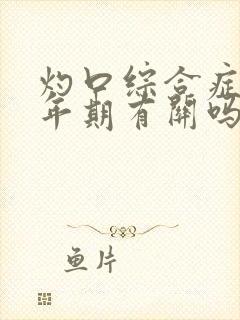 灼口综合症
年期有關吗
鱼片